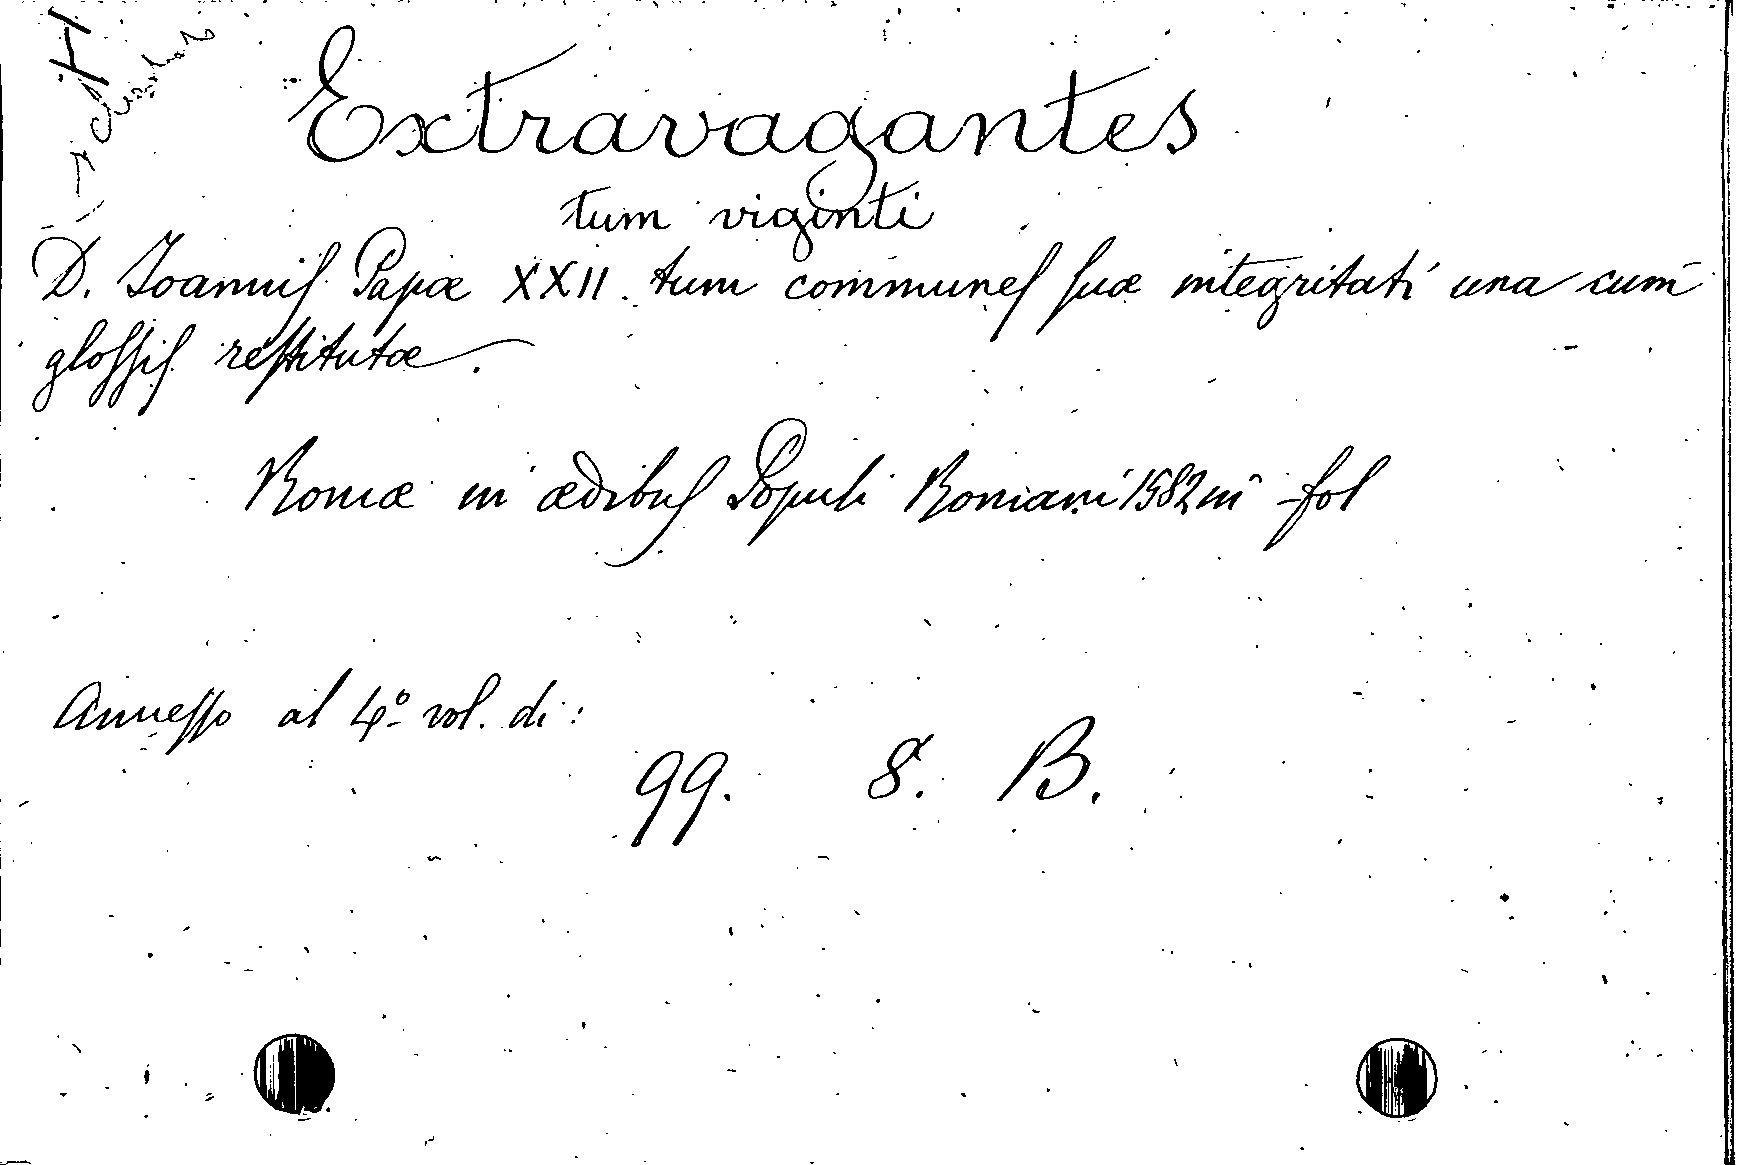 H
Extravagantes
tum viginti
D. Ioannis Papæ XXII. tum communes suæ integritati una cum
glossis restitutæ.
Romæ in ædibus Populi Romani 1582 in fol
Annesso al 4º vol. di:
99. 8. B.